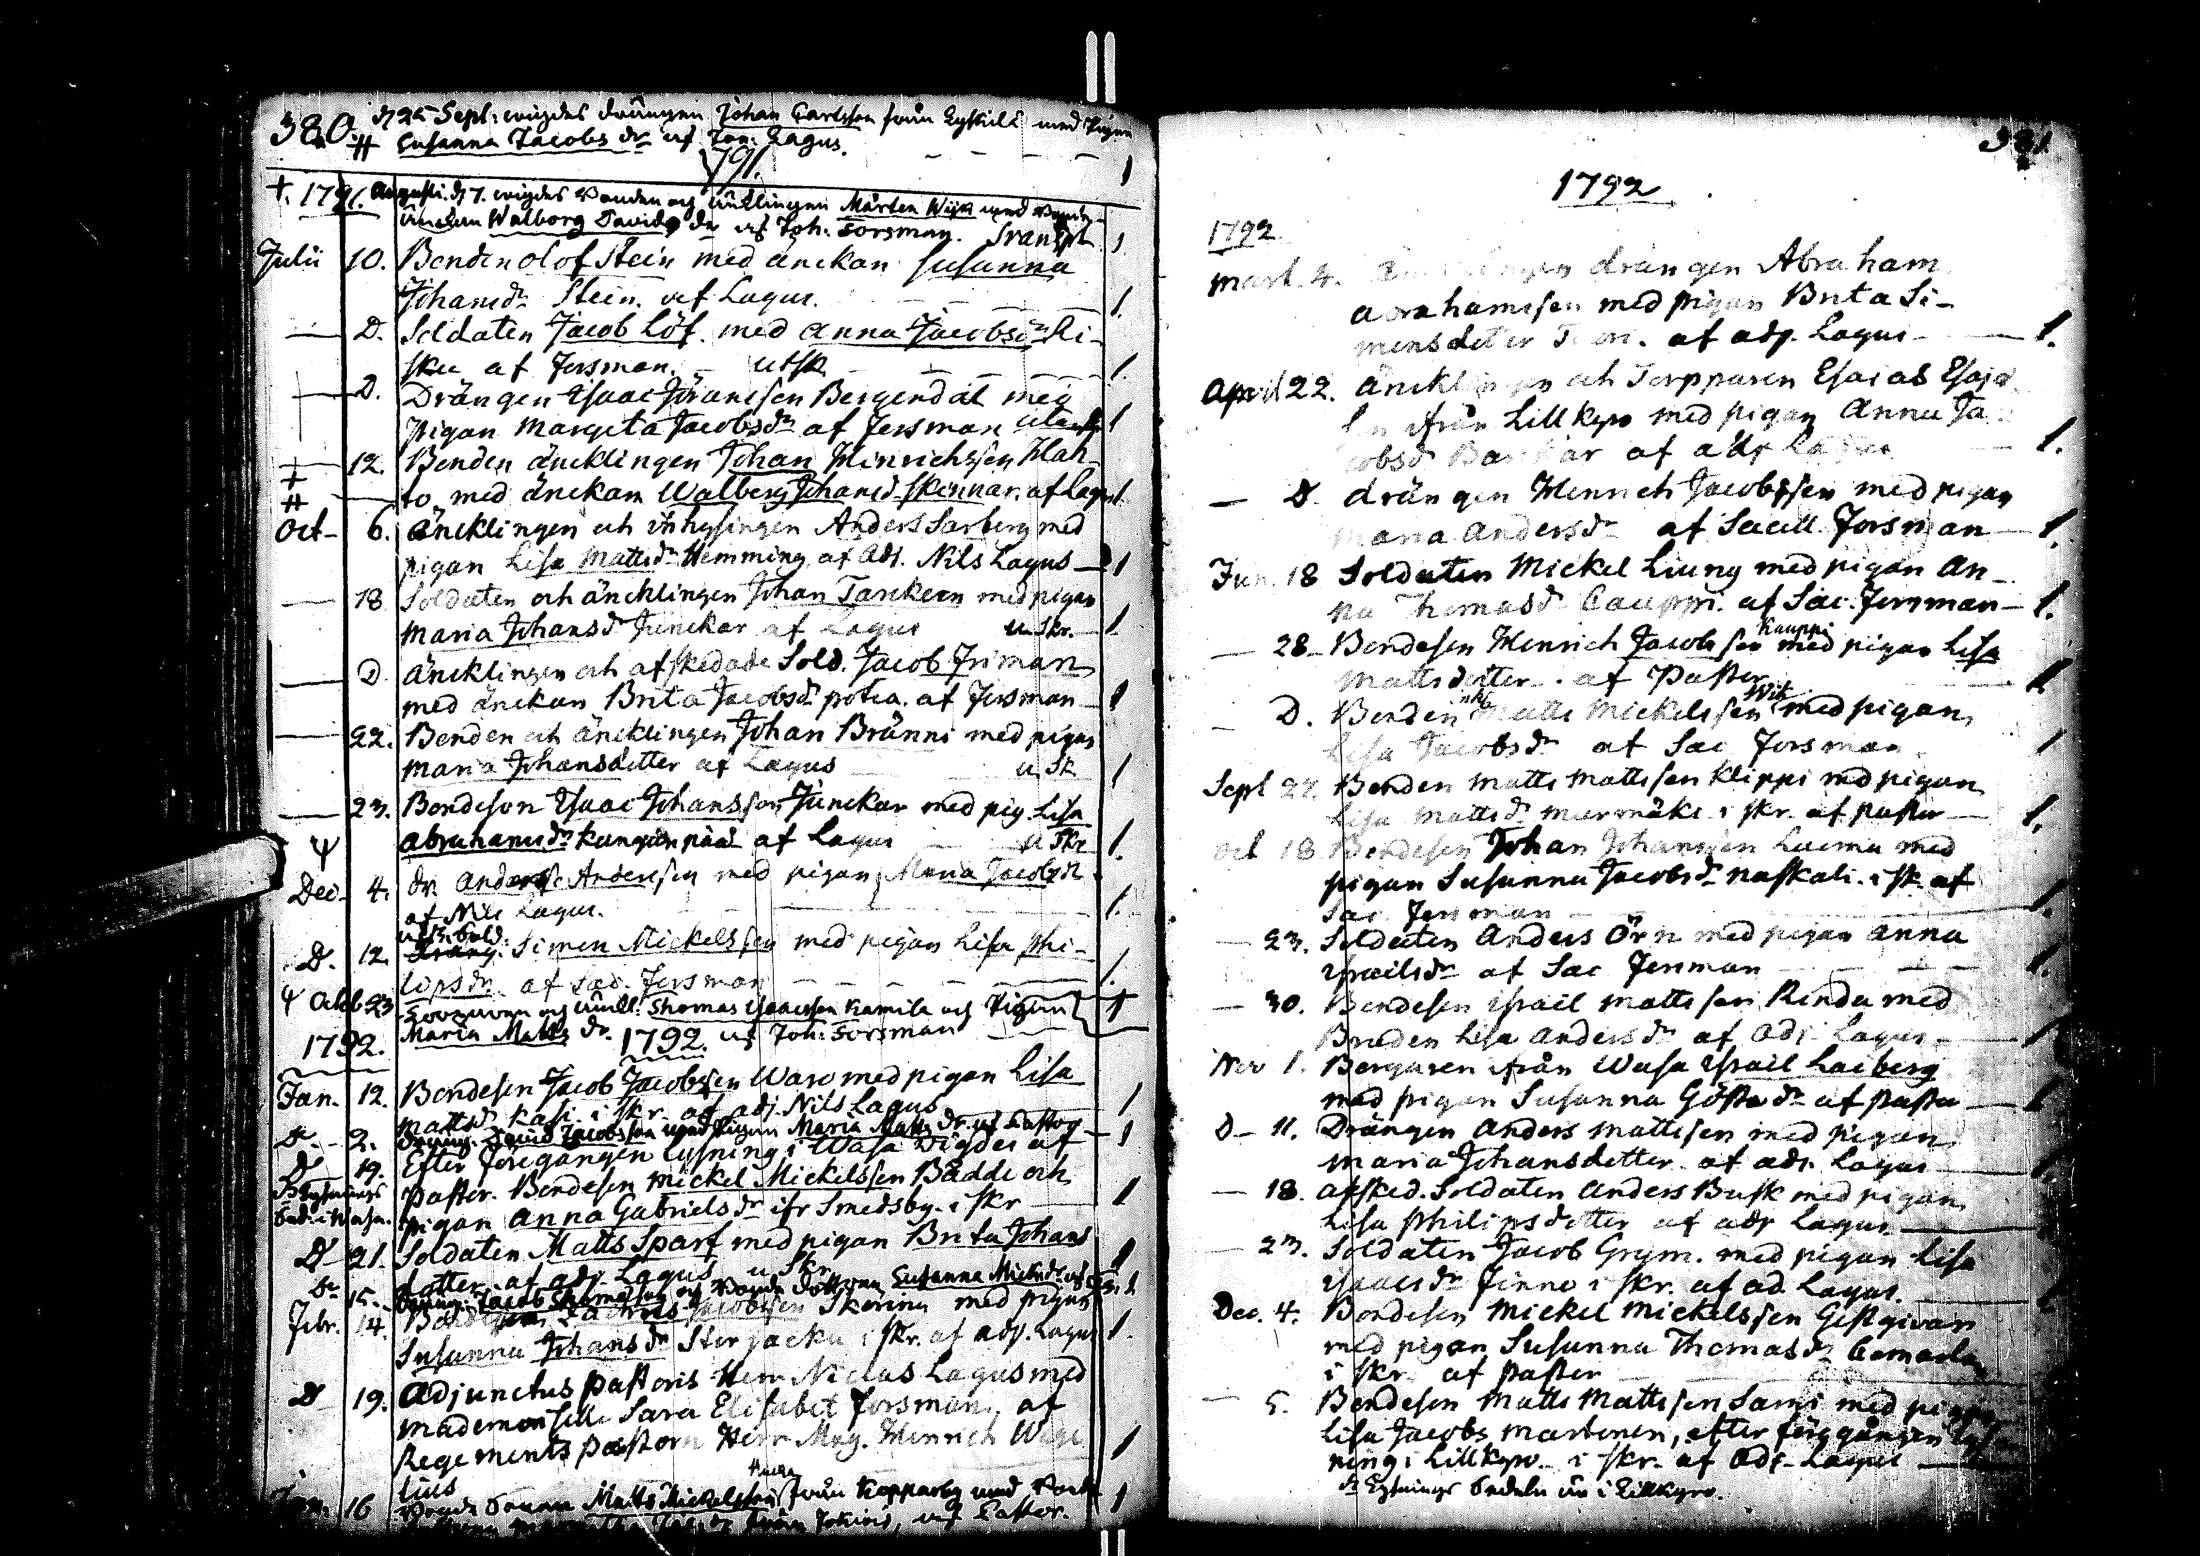 380. d 25 Sept: wigdes drängen Johan Carlsson från med Pigan
# Susanna Jacobs dr af Joh: Lagus. 1
1791.
†. 1791. Augusti. d 7. wigdes Bonden och änklingen Mårten Wijk med Bonde-
änckan Walborg Davids dr af Joh: Forsman. 1
Julii 10. Bonden Olof Stein med änckan Susanna
Johansdr Stein. af Lagus. 1.
— D. Soldaten Jacob Löf. med Anna Jacobsdr Ri-
sku af Forsman. utsk. 1.
— D. Drängen Isaac Jöransson Bergendal med
pigan Margeta Jacobsdr af Forsman 1
— 12. Bonden äncklingen Johan Hinrichssen Hah-
to med änckan Walberg Johansd. Skinnar. af Lagus 1.
Oct- 6. äncklingen och inhysingen Anders Sarberg med
pigan Lisa Mattsdr Hemming af Adj. Nils Lagus — 1
— 18 Soldaten och äncklingen Johan Tanckern med pigan
Maria Johansdr Junckar af Lagus u. Skr. — 1
— D. äncklingen och afskedade Sold. Jacob Friman
med änckan Brita Jacobsdr potra. af Forsman — 1
— 22. Bonden och äncklingen Johan Bränni med pigan
Maria Johansdotter af Lagus u. Sk 1
— 23. Bondeson Isaac Johansson Junckar med pig. Lisa
Abrahamsdr Kangan pää af Lagus u Skr 1.
Ψ
Dec- 4. dr. Anders Anderssen med pigan Maria Jacobsdr
af Nils Lagus. 1.
D. 12. Simon Mickelssen med pigan Lisa Phi-
lipsdr. af Sac. Forsman 1.
Ψ Octob 23 och änkl: Thomas Isacsson Kamila och Pigan
Maria Matts dr. af Joh: Forsman 1
1792. 1792.
Jan. 12. Bondesen Jacob Jacobssen Waro med pigan Lisa
Mattsdr Kasi i skr. af adj. Nils Lagus 1
D. - 2. Dräng. David Jacobsson med Pigan Maria Matts dr. af Pastor 1
D 19. Efter föregången lysning i Wasa Wigdes af
Pastor. Bondesen Mickel Mickelssen Bädde och
pigan Anna Gabriels dr ifr Smedsby. i skr 1
D 21. Soldaten Matts Sparf med pigan Brita Johans
dotter. af adj. Lagus u. Skr. 1
D 15. Jacob Thomasson och Bonde dottren Susanna Mickels dr 1
Febr. 14. Jacobssen Skäring med pigan
Susanna Johansdr Sterjacku i skr. af adj. Lagus 1.
D 19. Adjunctus Pastoris Herr Niclas Lagus med
mademoiselle Sara Elisabet Forsman. af
Regements Pastorn Herr Mag. Hinrich Wege
lius 1
Jan. 16 Bonde Sonen Matts Mickelsson Hacka från Kopparby med Bonde
af Pastor. 1
381
1792
1792
Mart. 4. drängen Abraham
Abrahamssen med pigan Brita Si-
mensdoter. af adj. Lagus — 1.
April 22. äncklingen och Torpparen Esaias Esaias
ifrån Lillkyro med pigan Anna Ja
cobsdr af adj Lagus 1.
— D drängen Henrich Jacobssen med pigan
Maria Andersdr af Sacell. Forsman — 1.
Jun. 18 Soldaten Mickel Liung med pigan An-
na Thomasdr Cauppi. af Sac. Forsman — 1.
— 28- Bondesen Henrich Jacobssen Kauppi med pigan Lisa
Mattsdotter. af Pastor 1
— D. Bonden Matts Mickelssen Wik med pigan
Lisa Jacobsdr af Sac Forsman. 1
Sept 27 Bonden Matts Mattssen Klippi med pigan
Lisa Mattsdr murmäki i skr. af pastor — 1.
Oct 18 Bondesen Johan Johanssen Luoma med
pigan Susanna Jacobsdr naskali. i sk. af
Sac. Forsman 1.
— 23. Soldaten Anders Örn med pigan Anna
Israelsdr af Sac Forsman 1.
— 30. Bondesen Israel Mattssen Rinda med
Bruden Lisa Andersdr af adj. Lagus 1
Nov 1. Borgaren ifrån Wasa Israel Laiberg
med pigan Susanna Göstadr af pastor — 1
D- 11. Drängen Anders Mattssen med pigan
Maria Johansdotter af adj. Lagus 1.
— 18. afsked. Soldaten Anders Busk med pigan
Lisa Philipsdotter af adj Lagus.
— 23. Soldaten Jacob Grym. med pigan Lisa
Isaacsdr Finno i skr. af ad. Lagus.
Dec. 4. Bondesen Mickel Mickelssen Gestgivars
med pigan Susanna Thomasdr
i skr. af Pastor
— 5. Bondesen Matts Mattssen Sami med pigan
Lisa Jacobs Martonen, efter föregången lys
ning i Lillkyro. i skr. af adj. Lagus
dr Lysnings Sedeln är i Lillkyro.